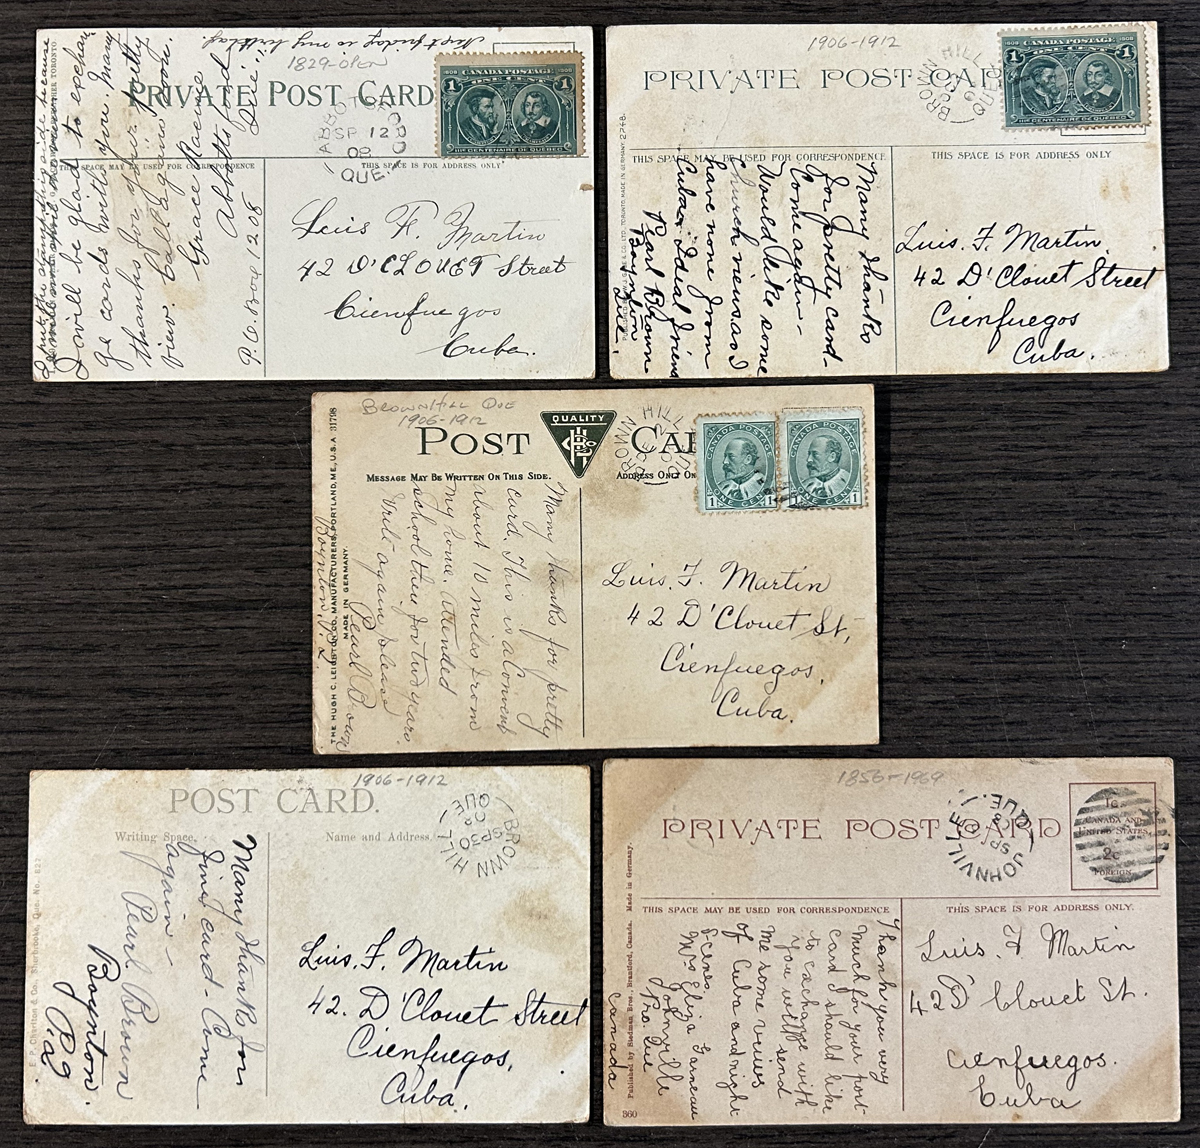 Next friday is my birthday.
1829-OPEN
PRIVATE POST CARD
CANADA POSTAGE
1608 1908
1 1
ONE CENT
IIIe CENTENAIRE DE QUÉBEC
ABBOTSFORD
SP 12
09
QUE.
THIS SPACE MAY BE USED FOR CORRESPONDENCE
THIS SPACE IS FOR ADDRESS ONLY
I will be glad to exchan
ge cards with you. Many
thanks for your pretty
view. Call again soon.
Grace Roach
Abbottsford
P.O. Box 1208 Que.
Luis F. Martin
42 D'CLOUET Street
Cienfuegos
Cuba.
1906-1912
PRIVATE POST CARD
BROWN HILL
QUE
CANADA POSTAGE
1608 1908
1 1
ONE CENT
IIIe CENTENAIRE DE QUÉBEC
THIS SPACE MAY BE USED FOR CORRESPONDENCE
THIS SPACE IS FOR ADDRESS ONLY
Many thanks
for pretty card-
Come again-
Would like some
Church views as I
have none from
Cuba.
Pearl Brown
Boynton
Que.
Luis. F. Martin.
42 D'Clouet Street
Cienfuegos
Cuba.
BROWNHILL QUE
1906-1912
QUALITY
POST CAR
BROWN HILL
QUE
CANADA POSTAGE
1 ONE CENT 1
CANADA POSTAGE
1 ONE CENT 1
MESSAGE MAY BE WRITTEN ON THIS SIDE.
ADDRESS ONLY ON
THE HUGH C. LEIGHTON CO., MANUFACTURERS, PORTLAND, ME., U.S.A. 31798
MADE IN GERMANY.
Many thanks for pretty
card. This is a Convent
about 10 miles from
my home. Attended
school there for two years.
Write again please
Pearl Brown
Boynton P.2.
Luis. F. Martin
42 D'Clouet St,
Cienfuegos,
Cuba.
1906-1912
POST CARD.
BROWN HILL
SP 30
QUE
Writing Space.
Name and Address.
Many thanks for
fine card- Come
again-
Pearl Brown
Boynton.
P.2.
Luis. F. Martin
42. D'Clouet Street
Cienfuegos,
Cuba.
1856-1969
PRIVATE POST CARD
JOHNVILLE
SP
QUE.
1c
CANADA AND
UNITED STATES
2c
FOREIGN
THIS SPACE MAY BE USED FOR CORRESPONDENCE
THIS SPACE IS FOR ADDRESS ONLY.
Published by Stedman Bros., Brantford, Canada. Made in Germany.
360
Thank you very
much for your post
Card I should like
to exchange with
you will send
me some views
of Cuba and night
Scenes.
Mrs Eliza Garneau
Johnville
Pro. Que
Canada
Luis. F Martin
42 D' Clouet St.
Cienfuegos.
Cuba